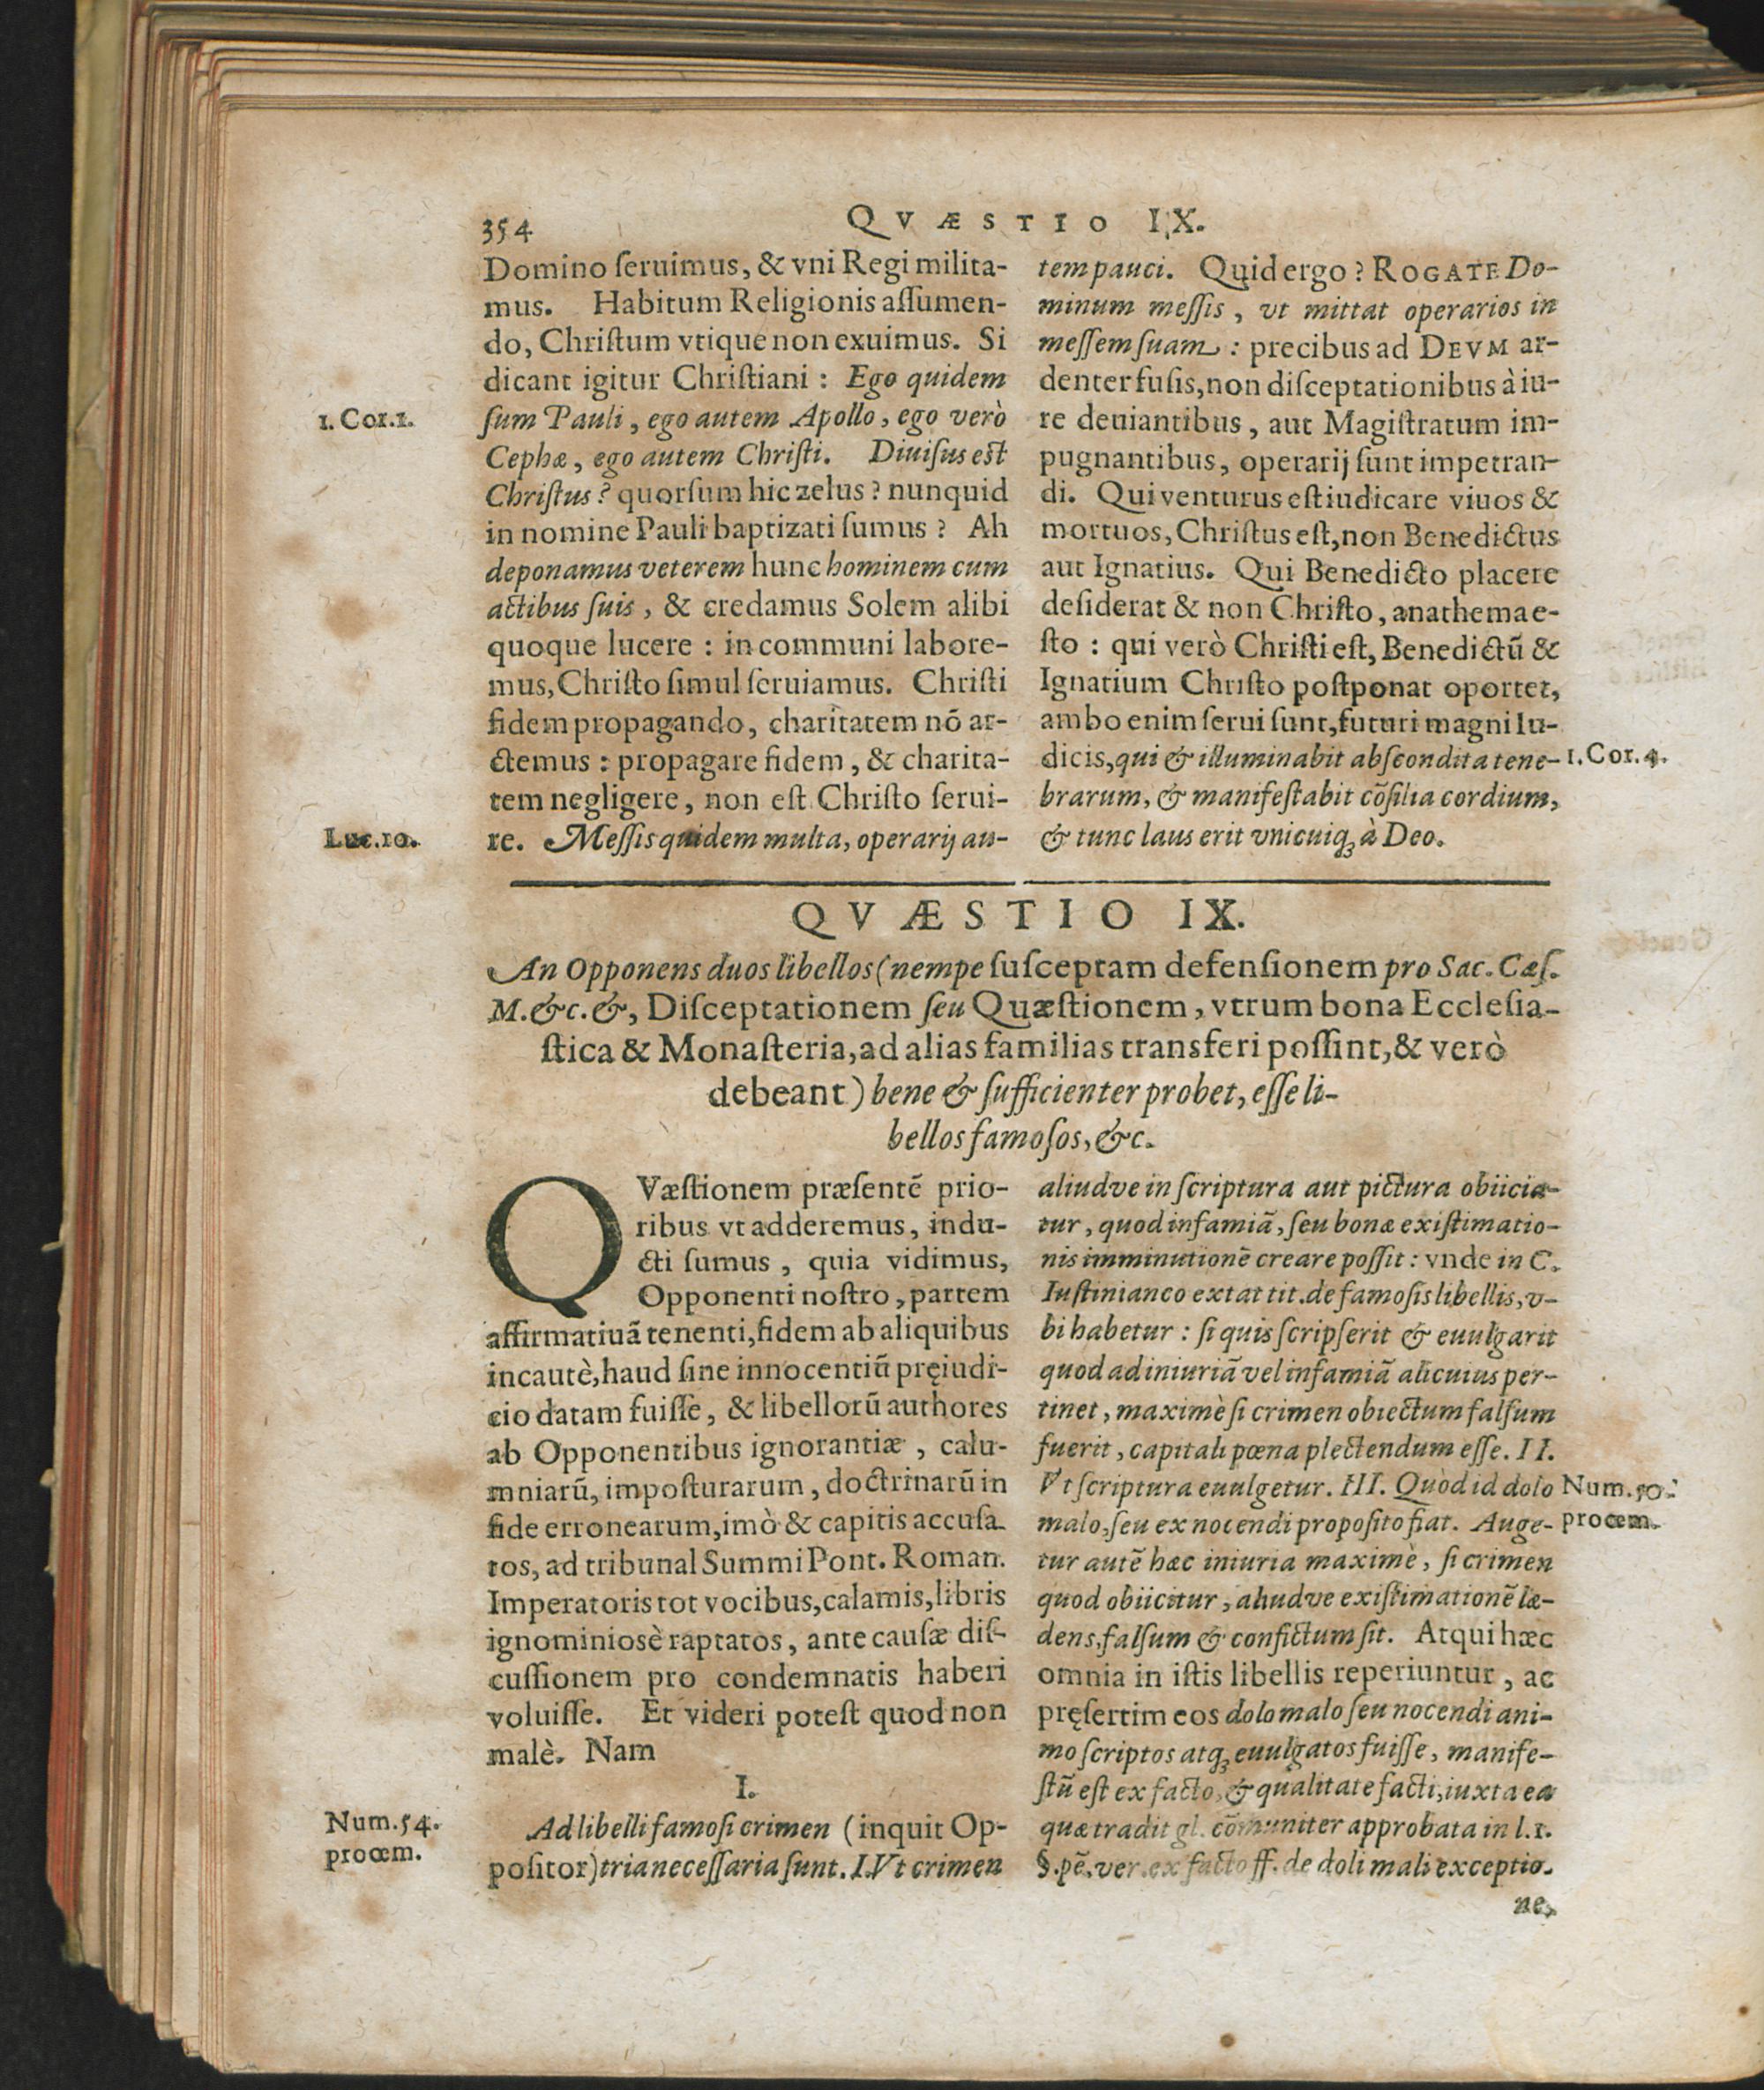 354
QVÆSTIO IX.
Domino ſeruimus, & vni Regi milita-
mus. Habitum Religionis aſſumen-
do, Chriſtum vtique non exuimus. Si
dicant igitur Chriſtiani : Ego quidem
1. Cor. 1.
ſum Pauli, ego autem Apollo, ego verò
Cephæ, ego autem Chriſti. Diuiſus est
Chriſtus? quorſum hic zelus? nunquid
in nomine Pauli baptizati ſumus? Ah
deponamus veterem hunc hominem cum
actibus ſuis, & credamus Solem alibi
quoque lucere : in communi labore-
mus, Chriſto ſimul ſeruiamus. Chriſti
fidem propagando, charitatem nō ar-
ctemus : propagare fidem, & charita-
tem negligere, non eſt Chriſto ſerui-
Luc. 10.
re. Meſſis quidem multa, operarij au-
tem pauci. Quid ergo? ROGATE Do-
minum meſſis, vt mittat operarios in
meſſem ſuam : precibus ad DEVM ar-
denter fuſis, non diſceptationibus à iu-
re deuiantibus, aut Magiſtratum im-
pugnantibus, operarij ſunt impetran-
di. Qui venturus eſt iudicare viuos &
mortuos, Chriſtus eſt, non Benedictus
aut Ignatius. Qui Benedicto placere
deſiderat & non Chriſto, anathema e-
ſto : qui verò Chriſti eſt, Benedictū &
Ignatium Chriſto poſtponat oportet,
ambo enim ſerui ſunt, futuri magni Iu-
dicis, qui & illuminabit abſcondita tene-
1. Cor. 4.
brarum, & manifeſtabit cōſilia cordium,
& tunc laus erit vnicuiq; à Deo.
QVÆSTIO IX.
An Opponens duos libellos (nempe ſuſceptam defenſionem pro Sac. Cæſ.
M. &c. &, Diſceptationem ſeu Quæſtionem, vtrum bona Eccleſia-
ſtica & Monaſteria, ad alias familias transferi poſſint, & verò
debeant) bene & ſufficienter probet, eſſe li-
bellos famoſos, &c.
QVæſtionem præſentē prio-
ribus vt adderemus, indu-
cti ſumus, quia vidimus,
Opponenti noſtro, partem
affirmatiuā tenenti, fidem ab aliquibus
incautè, haud ſine innocentiū pręiudi-
cio datam fuiſſe, & libellorū authores
ab Opponentibus ignorantiæ, calu-
mniarū, impoſturarum, doctrinarū in
fide erronearum, imò & capitis accuſa-
tos, ad tribunal Summi Pont. Roman.
Imperatoris tot vocibus, calamis, libris
ignominiosè raptatos, ante cauſæ diſ-
cuſſionem pro condemnatis haberi
voluiſſe. Et videri poteſt quod non
malè. Nam
I.
Num. 54.
prooem.
Ad libelli famoſi crimen (inquit Op-
poſitor) tria neceſſaria ſunt. I. Vt crimen
aliudve in ſcriptura aut pictura obiicia-
tur, quod infamiā, ſeu bonæ exiſtimatio-
nis imminutionē creare poſſit : vnde in C.
Iuſtinianeo extat tit. de famoſis libellis, v-
bi habetur : ſi quis ſcripſerit & euulgarit
quod ad iniuriā vel infamiā alicuius per-
tinet, maximè ſi crimen obiectum falſum
fuerit, capitali pœna plectendum eſſe. II.
Vt ſcriptura euulgetur. III. Quòd id dolo
Num. 50.
prooem.
malo, ſeu ex nocendi propoſito fiat. Auge-
tur autē hæc iniuria maximè, ſi crimen
quod obiicitur, aliudve exiſtimationē læ-
dens, falſum & confictum ſit. Atqui hæc
omnia in iſtis libellis reperiuntur, ac
pręſertim eos dolo malo ſeu nocendi ani-
mo ſcriptos atq; euulgatos fuiſſe, manife-
ſtū eſt ex facto, & qualitate facti, iuxta ea
quæ tradit gl. cōmuniter approbata in l. 1.
§. pē. ver. ex facto ff. de doli mali exceptio-
ne,